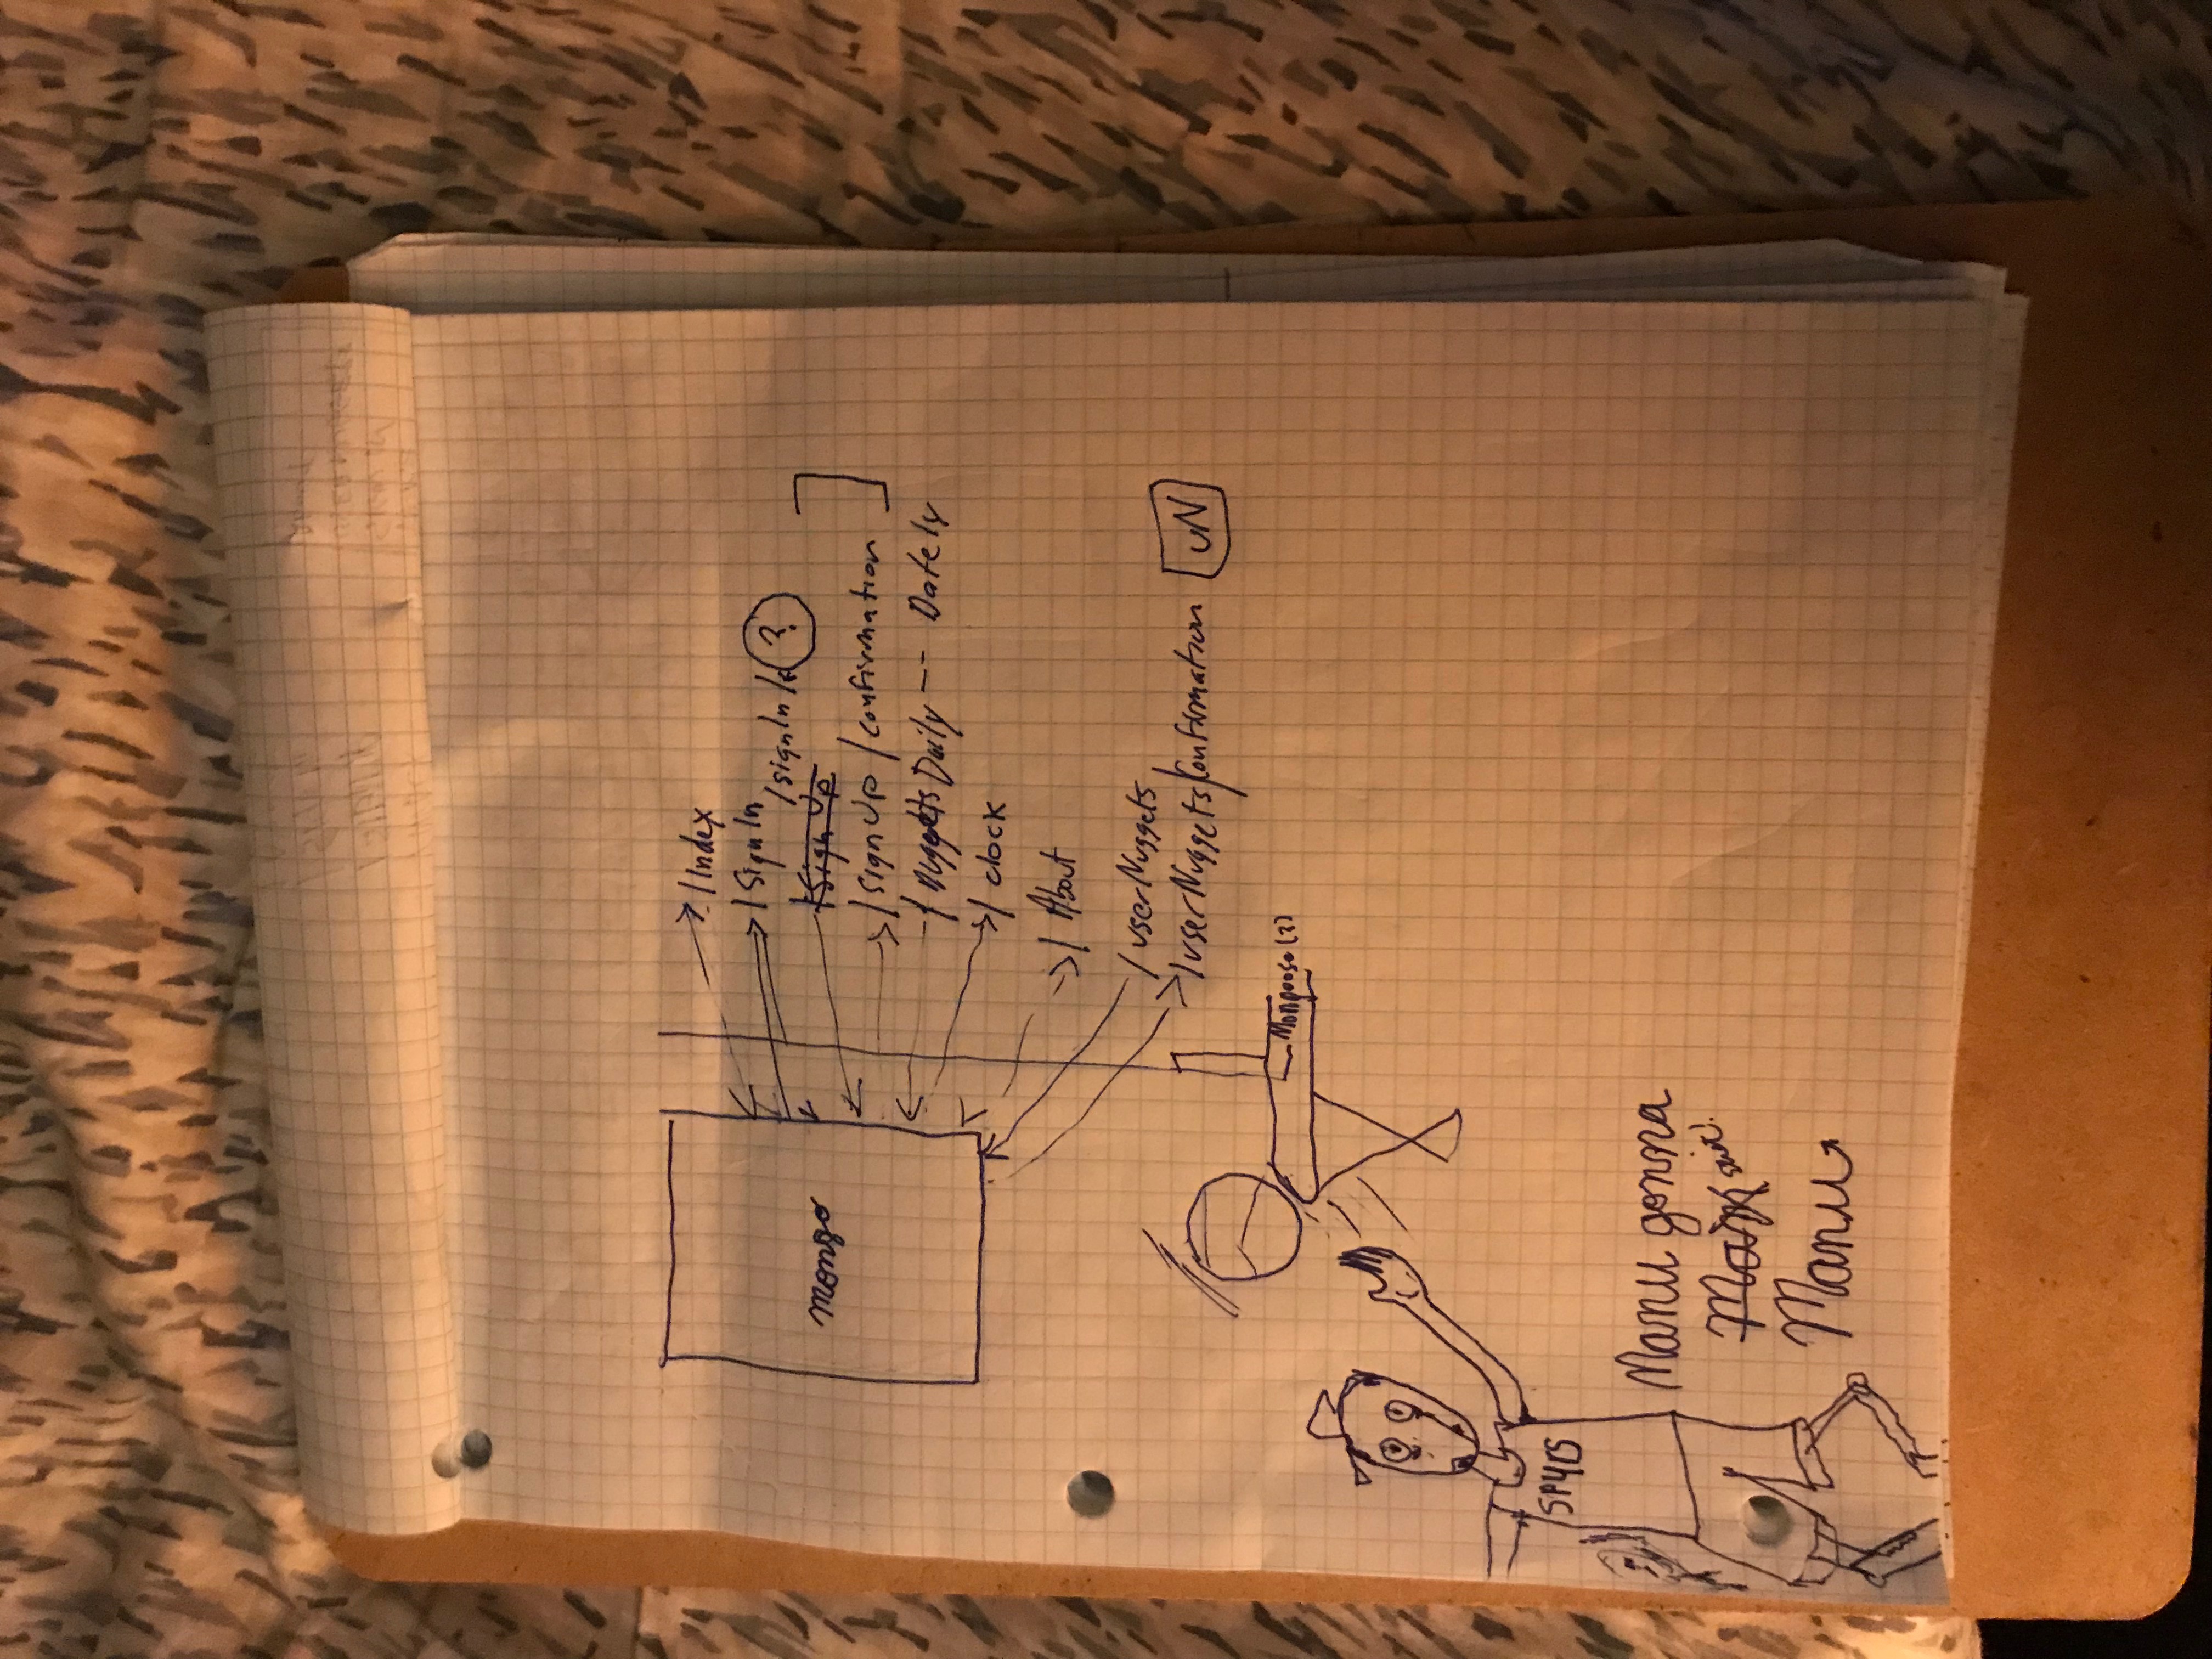 /Index
/SignIn
/signIn/ ?
mongo
/Sign Up
/signUp/confirmation
/nuggetsDaily -- Dately
/clock
/About
/userNuggets
/userNuggets/Confirmation UN
Mongoose (?)
SPURS
Manu gonna
Manu